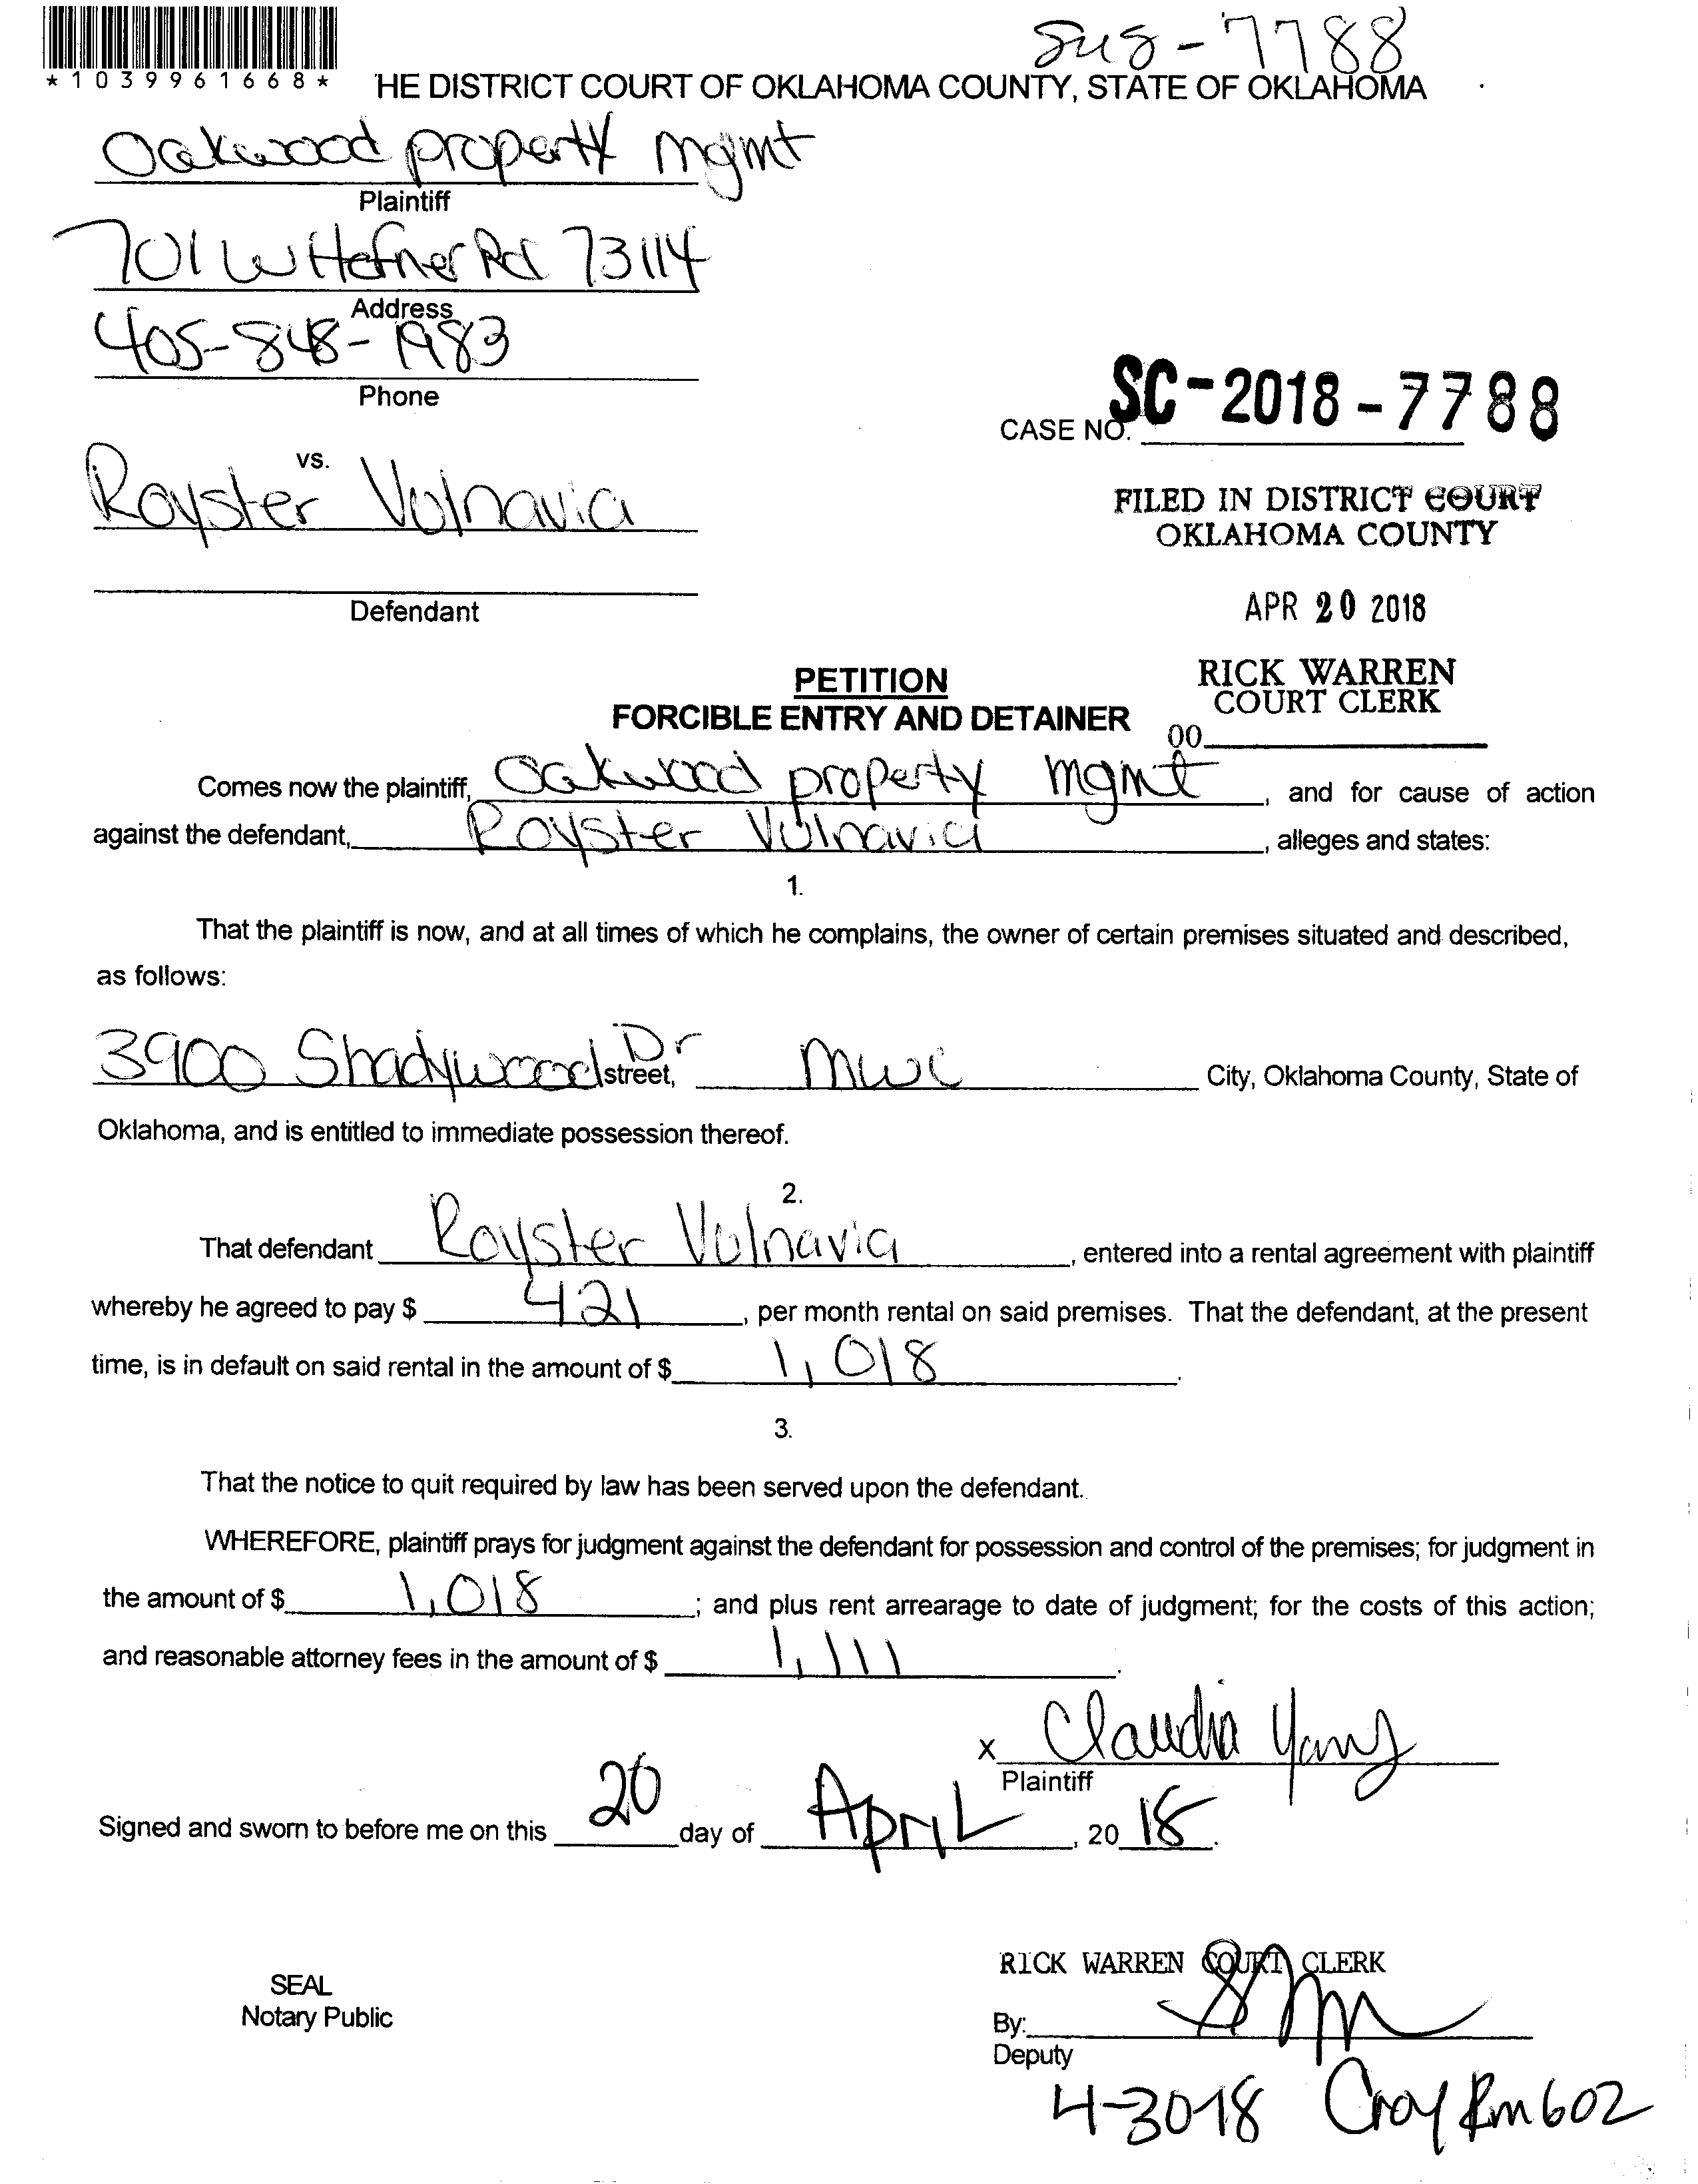 *1039961668*
SC18-7788
HE DISTRICT COURT OF OKLAHOMA COUNTY, STATE OF OKLAHOMA
Oakwood property mgmt
Plaintiff
701 W Hefner Rd 73114
Address
405-848-1983
Phone
CASE NO. SC-2018-7788
vs.
Royster Volnavia
FILED IN DISTRICT COURT
OKLAHOMA COUNTY
Defendant
APR 20 2018
PETITION
FORCIBLE ENTRY AND DETAINER
RICK WARREN
COURT CLERK
00
Comes now the plaintiff, Oakwood property mgmt, and for cause of action
against the defendant, Royster Volnavia, alleges and states:
1.
That the plaintiff is now, and at all times of which he complains, the owner of certain premises situated and described,
as follows:
3900 Shadywood Dr street, MWC City, Oklahoma County, State of
Oklahoma, and is entitled to immediate possession thereof.
2.
That defendant Royster Volnavia, entered into a rental agreement with plaintiff
whereby he agreed to pay $ 421, per month rental on said premises. That the defendant, at the present
time, is in default on said rental in the amount of $ 1,018.
3.
That the notice to quit required by law has been served upon the defendant.
WHEREFORE, plaintiff prays for judgment against the defendant for possession and control of the premises; for judgment in
the amount of $ 1,018; and plus rent arrearage to date of judgment; for the costs of this action;
and reasonable attorney fees in the amount of $ 1,111.
x Claudia Yanz
Plaintiff
Signed and sworn to before me on this 20 day of April, 20 18.
SEAL
Notary Public
RICK WARREN COURT CLERK
By:
Deputy
4-30-18 Croy Rm 602